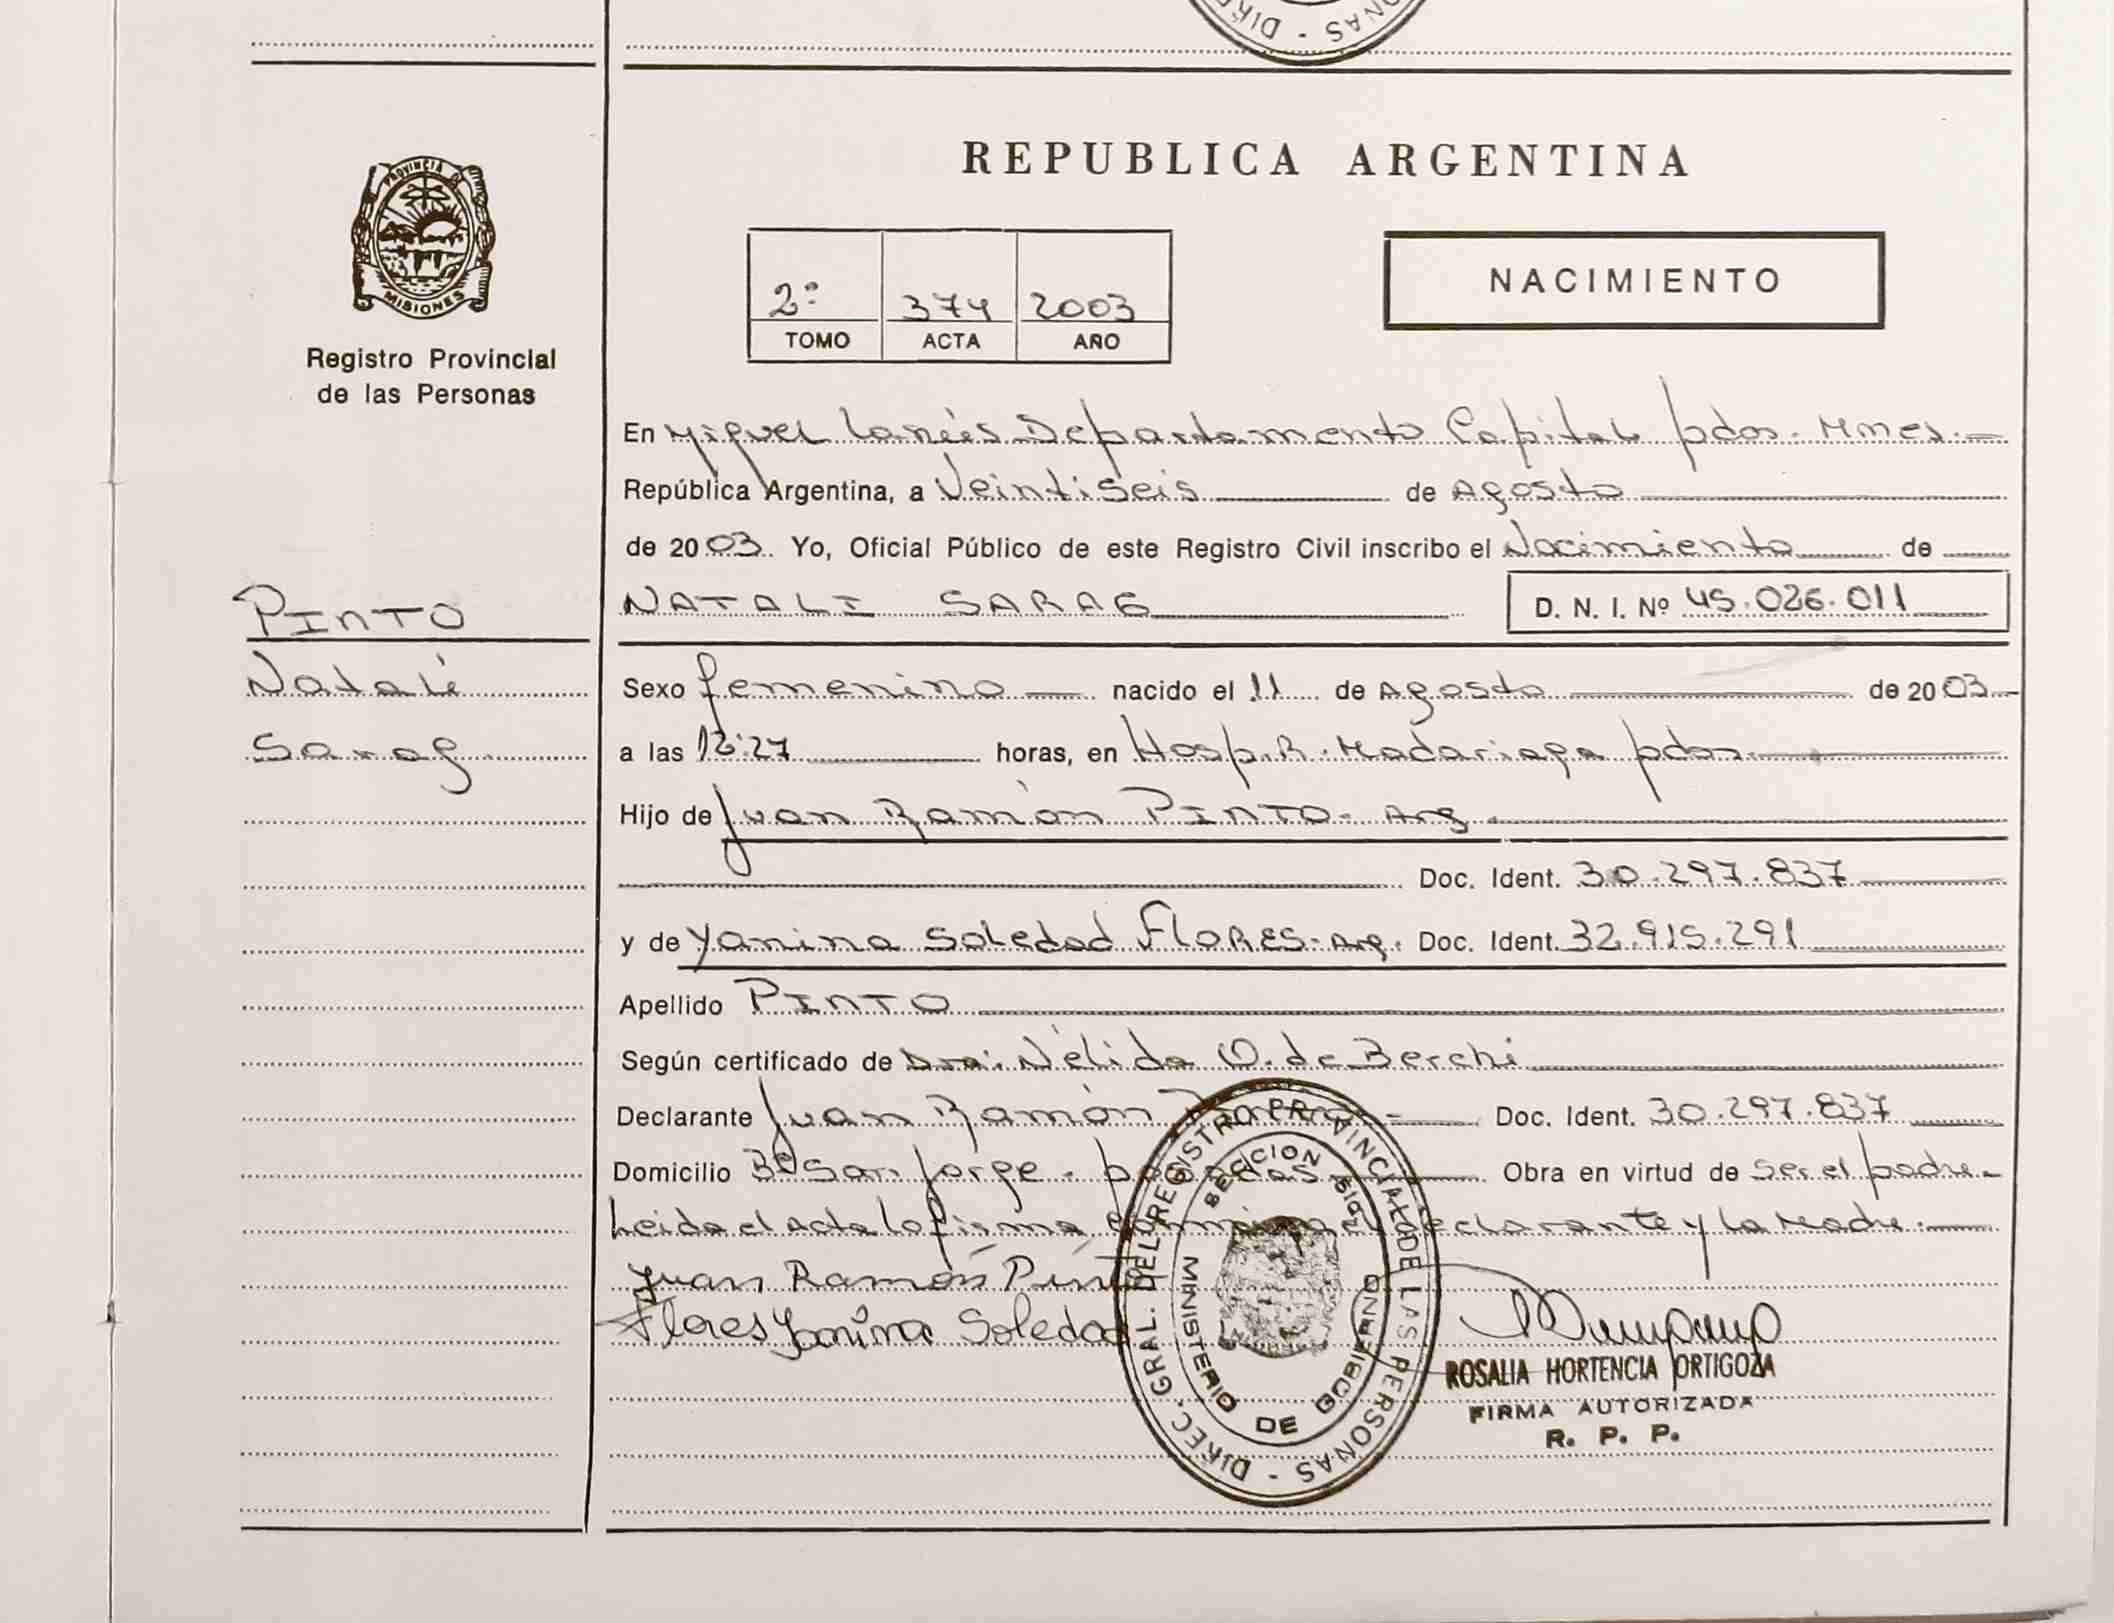 DIREC. ONAS -
PROVINCIA DE
MISIONES
Registro Provincial
de las Personas
REPUBLICA ARGENTINA
2º 374 2003
TOMO ACTA AÑO
NACIMIENTO
En Miguel Lanús Departamento Capital pdas. Mnes.
República Argentina, a Veintiseis de Agosto
de 2003. Yo, Oficial Público de este Registro Civil inscribo el Nacimiento de
NATALI SARAG
D. N. I. Nº 45.026.011
PINTO
Natali
Sarag
Sexo femenino nacido el 11 de Agosto de 2003
a las horas, en Hosp. R. Madariaga pdas.
Hijo de Juan Ramón PINTO - Arg
Doc. Ident. 30.297.837
y de Yanina Soledad FLORES - Arg. Doc. Ident. 32.915.291
Apellido PINTO
Según certificado de Dra. Nélida O. de Berchi
Declarante Juan Ramón Pinto Doc. Ident. 30.297.837
Domicilio Bº San Jorge - posadas Obra en virtud de Ser el padre
Leida el Acta la firma el declarante y la Madre
Juan Ramón Pinto
Flores Yanina Soledad
DIREC. GRAL. DEL REGISTRO PROVINCIAL DE LAS PERSONAS -
MINISTERIO DE GOBIERNO
ROSALIA HORTENCIA ORTIGOZA
FIRMA AUTORIZADA
R. P. P.